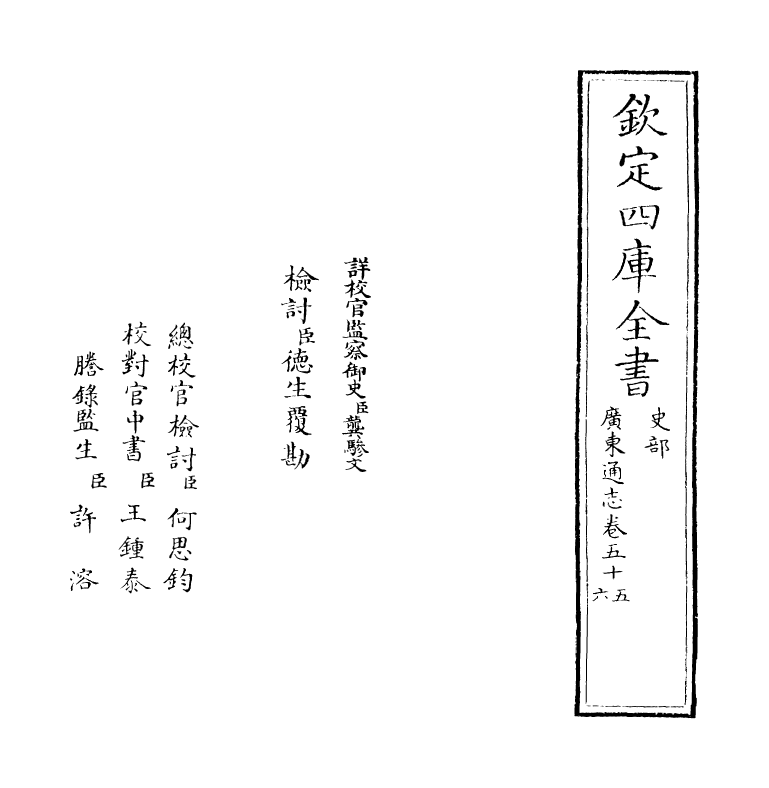 欽定四庫全書
史部
廣東通志卷五十五六
詳校官監察御史臣龔驂文
檢討臣德生覆勘
總校官檢討臣何思鈞
校對官中書臣王鍾泰
謄錄監生臣許溶